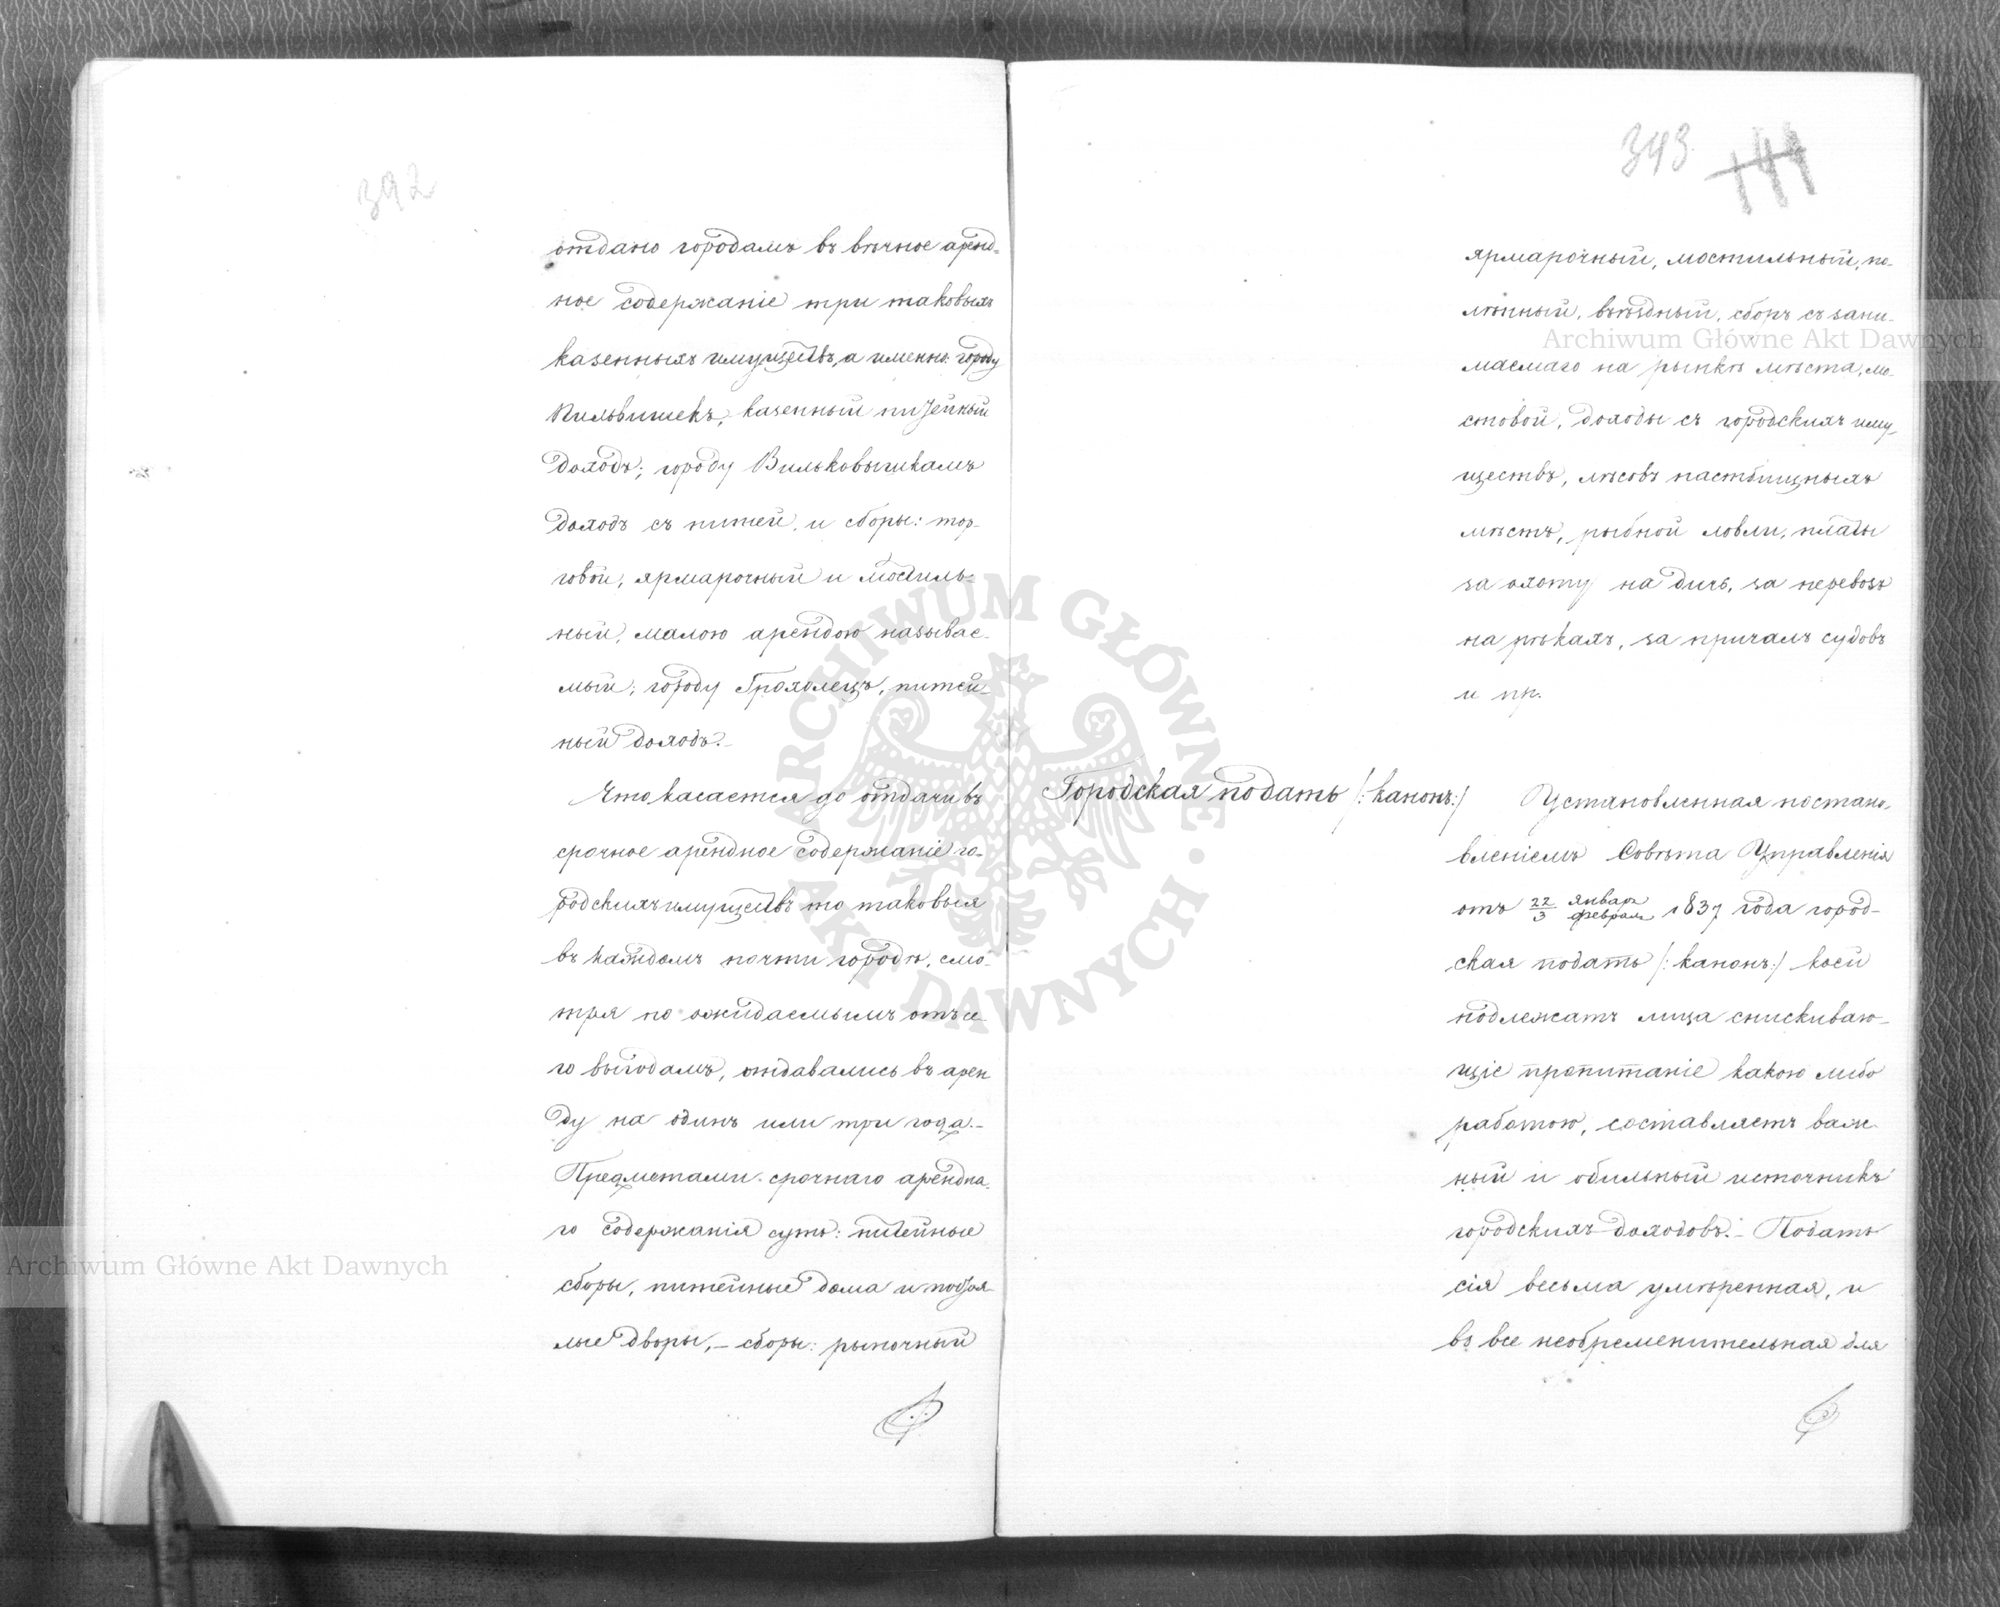 392
отдано городамъ въ вѣчное аренд-
ное содержаніе три таковыхъ
казенныхъ имуществъ, а именно: городу
Пильвишекъ, казенный питейный
доходъ; городу Вильковышкамъ
доходъ съ питей, и сборы: тор-
говой, ярмарочный и мостиль-
ный, малою арендою называе-
мый; городу Граховецъ, питей-
ный доходъ.-
Что касается до отдачи въ
срочное арендное содержаніе го-
родскихъ имуществъ то таковыя
въ каждомъ почти городѣ, смо-
тря по ожидаемымъ отъ се-
го выгодамъ, отдавались въ арен
ду на одинъ или три года.-
Предметами срочнаго арендна-
го содержанія суть: питейные
сборы, питейные дома и постоя-
лые дворы, - сборы: рыночный
343 144
ярмарочный, мостильный, по-
лѣнный, въѣздный, сборъ съ зани-
маемаго на рынкѣ мѣста, мо-
стовой, доходы съ городскихъ иму-
ществъ, лѣсовъ пастбищныхъ
мѣстъ, рыбной ловли, платы
за охоту на дичь, за перевозъ
на рѣкахъ, за причалъ судовъ
и пр.
Городская подать /:канонъ:/
Установленная постано-
вленіемъ Совѣта Управленія
отъ 22/3 Января/Февраля 1837 года город-
ская подать /:канонъ:/ коей
подлежатъ лица снискиваю-
щіе пропитаніе какою либо
работою, составляетъ важ-
ный и обильный источникъ
городскихъ доходовъ.- Подать
сія весьма умѣренная, и
во все необременительная для
Archiwum Główne Akt Dawnych
Archiwum Główne Akt Dawnych
ARCHIWUM GŁÓWNE AKT DAWNYCH